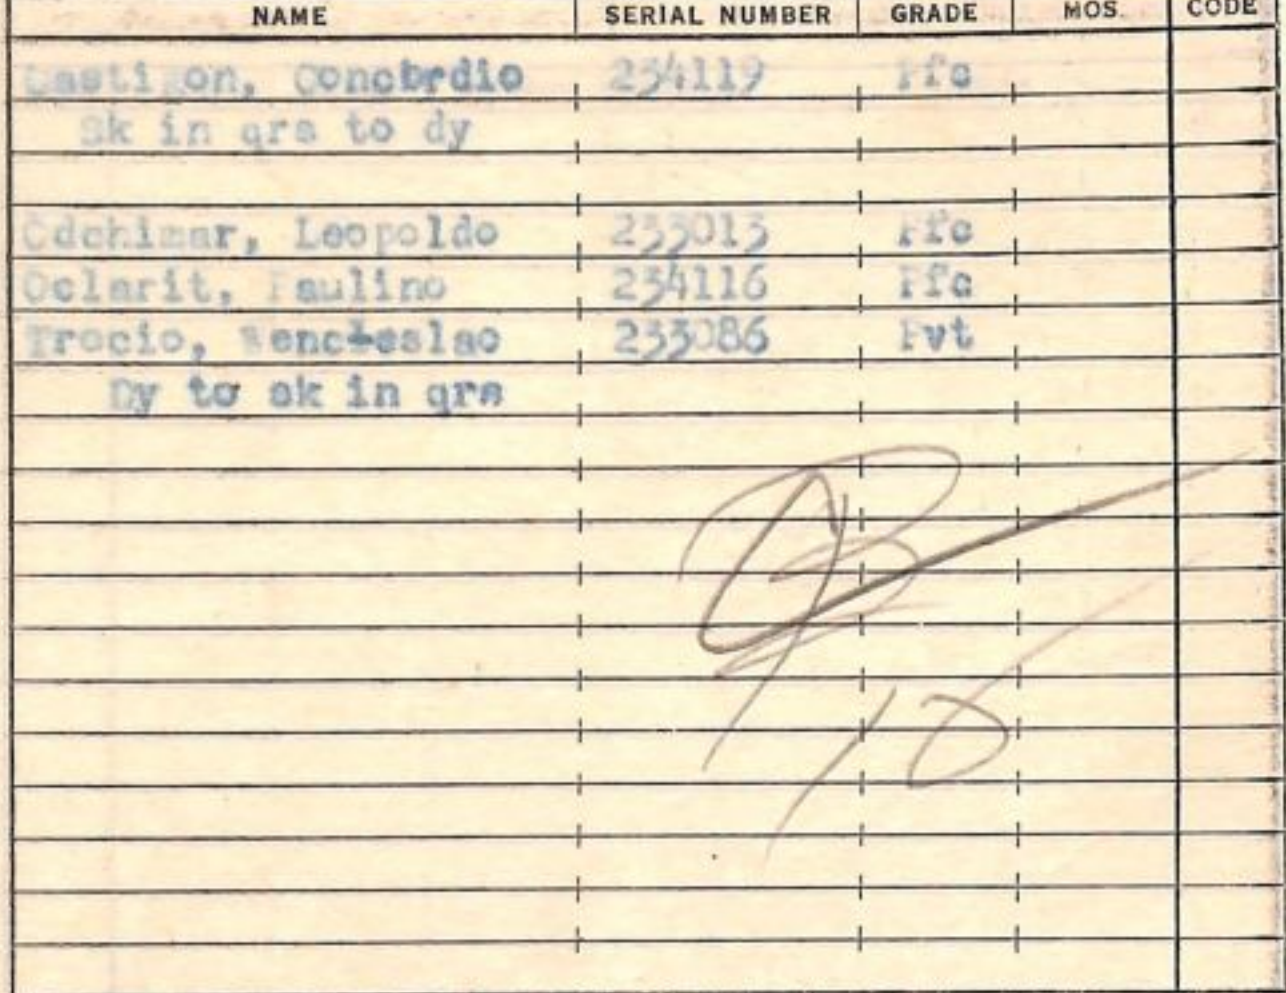 NAME SERIAL NUMBER GRADE MOS. CODE
Concordio 234119 Pfc
Sk in qrs to dy
Odchimar, Leopoldo 233013 Pfc
Oclarit, Paulino 234116 Pfc
Trocio, Wencleslao 233086 Pvt
Dy to sk in qrs